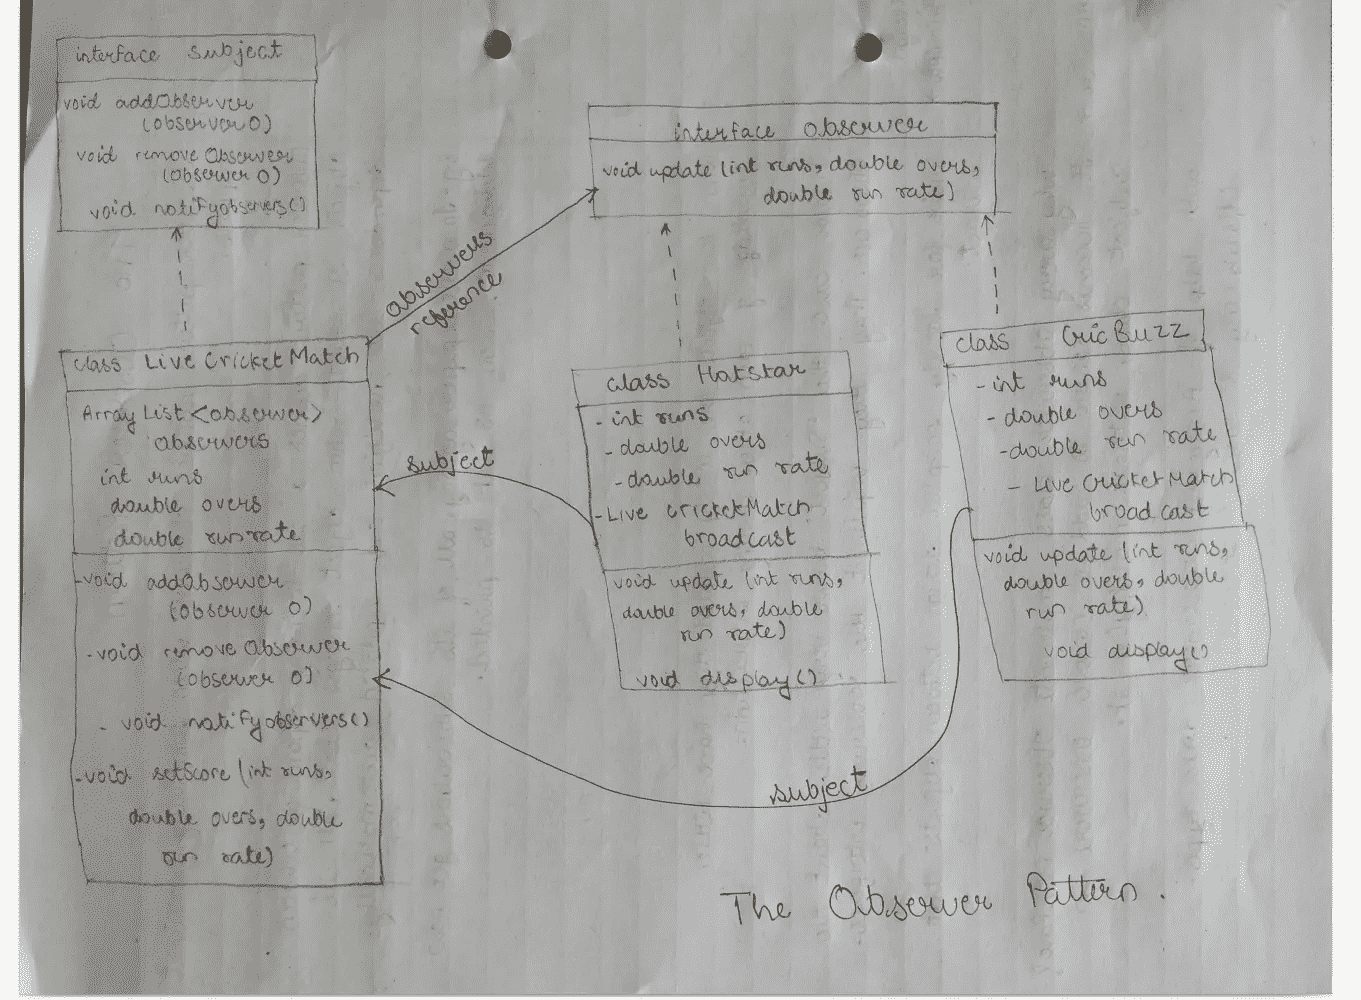 interface subject
void addObserver
(observer O)
void remove Observer
(observer O)
void notifyobservers()
interface observer
void update (int runs, double overs,
double run rate)
observers
reference
class Live Cricket Match
Array List <observer>
observers
int runs
double overs
double run rate
-void addObserver
(observer O)
-void remove Observer
(observer O)
- void notifyobservers()
-void setScore (int runs,
double overs, double
run rate)
subject
class Hotstar
-int runs
-double overs
-double run rate
-Live CricketMatch
broadcast
void update (int runs,
double overs, double
run rate)
void display()
class CricBuzz
-int runs
-double overs
-double run rate
- Live CricketMatch
broadcast
void update (int runs,
double overs, double
run rate)
void display()
subject
The Observer Pattern.